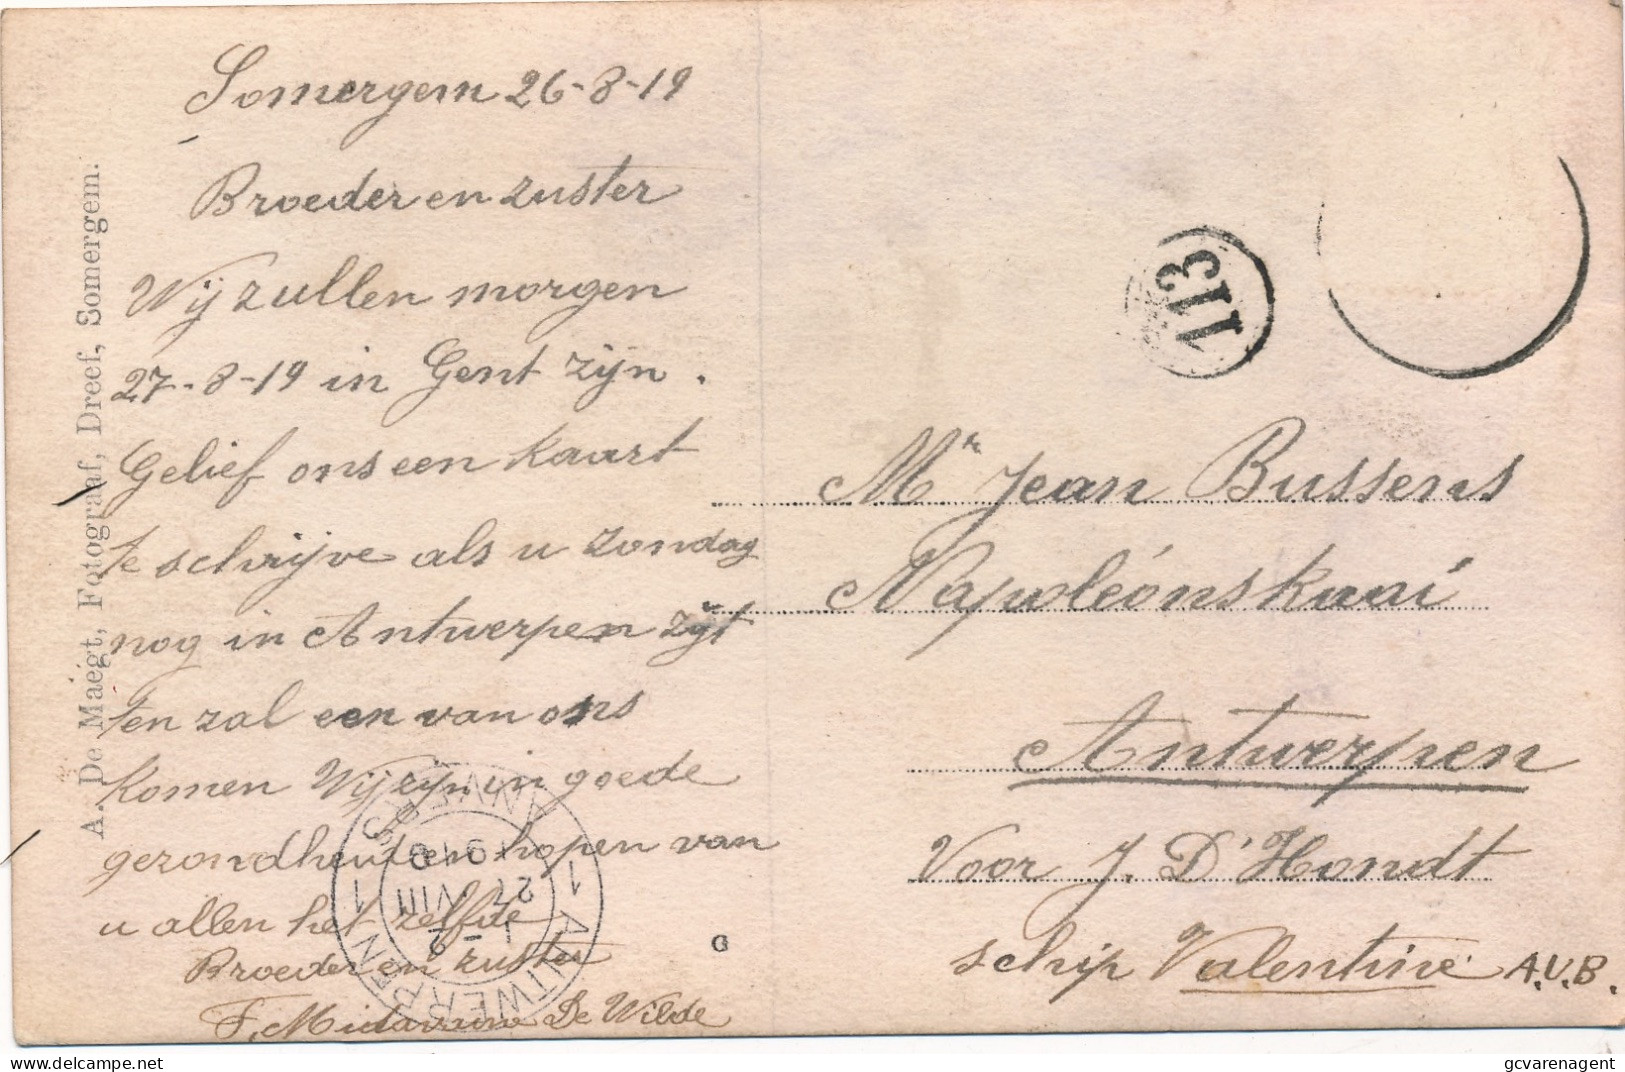 Somergem 26-8-19
Broeder en zuster
Wij zullen morgen
27-8-19 in Gent zijn.
Gelief ons een kaart
te schrijve als u zondag
nog in Antwerpen zijt
ten zal een van ons
komen Wij zijn in goede
gezondheid en hopen van
u allen het zelfde
Broeder en zuster
F. De Wilde
A. De Maegt, Fotograaf, Dreef, Somergem.
113
Mr Jean Bussens
Napoléonskaai
Antwerpen
Voor J. D'Hondt
schip Valentine A.V.B.
1 ANTWERPEN 1 ANVERS
27 VIII
G
gcvarenagent